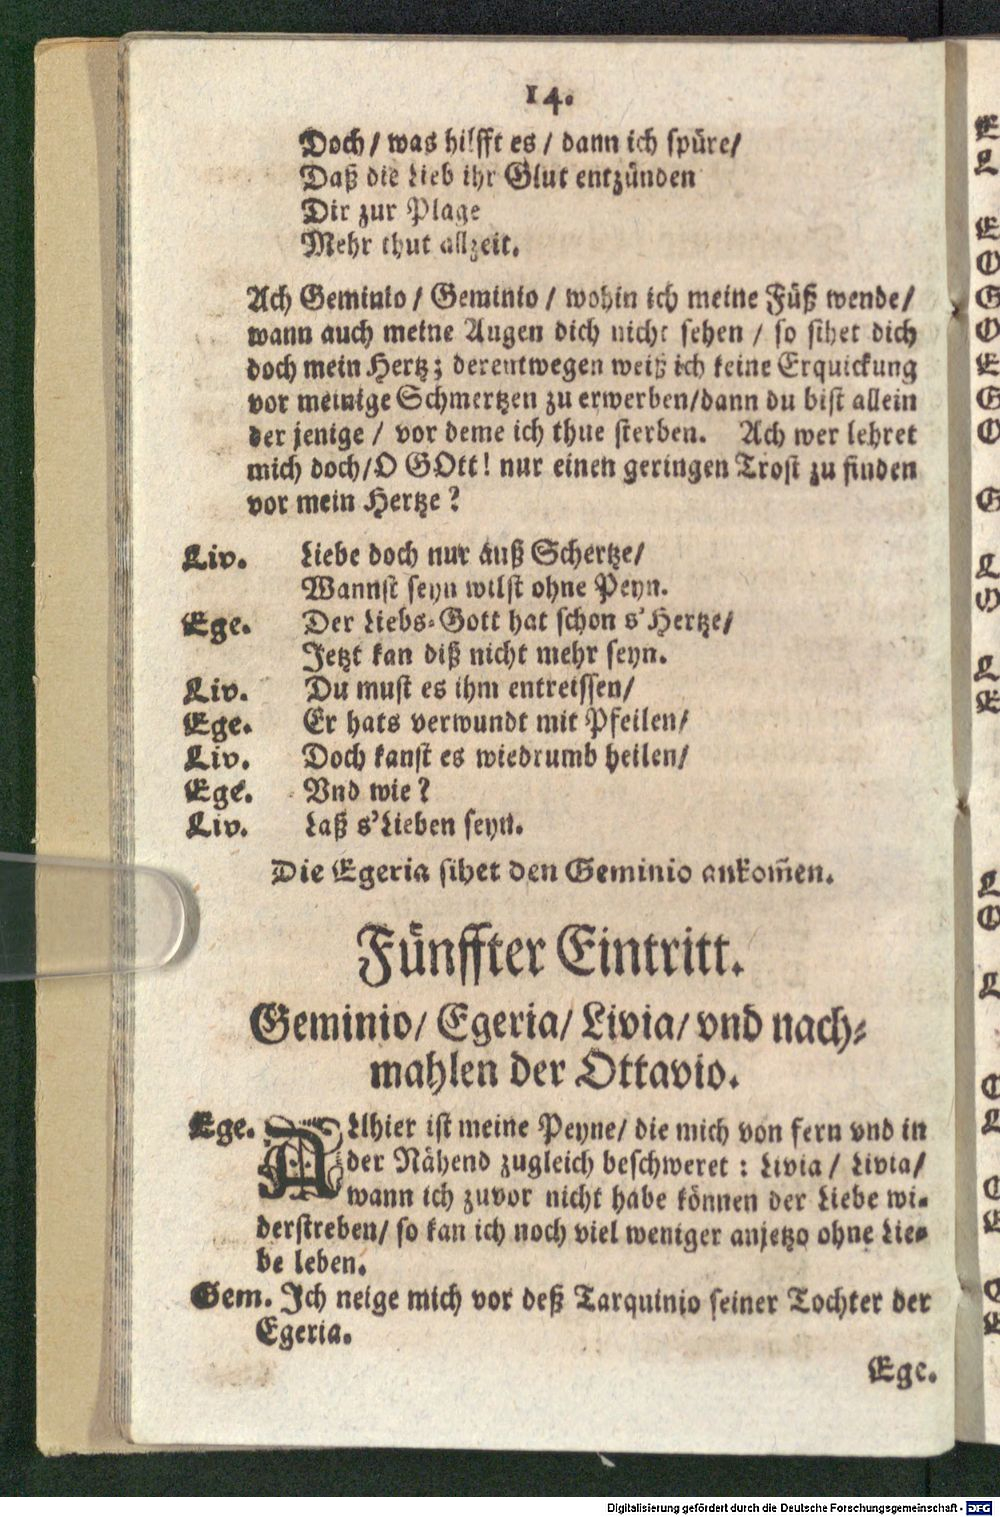 14.
Doch/ was hilfft es / dann ich spüre/
Daß die Lieb ihr Glut entzünden
Dir zur Plage
Mehr thut allzeit.
Ach Geminio / Geminio / wohin ich meine Füß wende/
wann auch meine Augen dich nicht sehen / so sihet dich
doch mein Hertz; derentwegen weiß ich keine Erquickung
vor meinige Schmertzen zu erwerben/dann du bist allein
der jenige / vor deme ich thue sterben. Ach wer lehret
mich doch/O GOtt! nur einen geringen Trost zu finden
vor mein Hertze ?
Liv. Liebe doch nur auß Schertze/
Wannst seyn wilst ohne Peyn.
Ege. Der Liebs-Gott hat schon s'Hertze/
Jetzt kan diß nicht mehr seyn.
Liv. Du must es ihm entreissen/
Ege. Er hats verwundt mit Pfeilen/
Liv. Doch kanst es wiedrumb heilen/
Ege. Vnd wie ?
Liv. Laß s'Lieben seyn.
Die Egeria sihet den Geminio ankom̃en.
Fünffter Eintritt.
Geminio/ Egeria/ Livia/ vnd nach-
mahlen der Ottavio.
Ege. ALlhier ist meine Peyne/ die mich von fern vnd in
der Nähend zugleich beschweret : Livia / Livia/
wann ich zuvor nicht habe können der Liebe wi-
derstreben/ so kan ich noch viel weniger anjetzo ohne Lie-
be leben.
Gem. Ich neige mich vor deß Tarquinio seiner Tochter der
Egeria.
Ege.
Digitalisierung gefördert durch die Deutsche Forschungsgemeinschaft - DFG